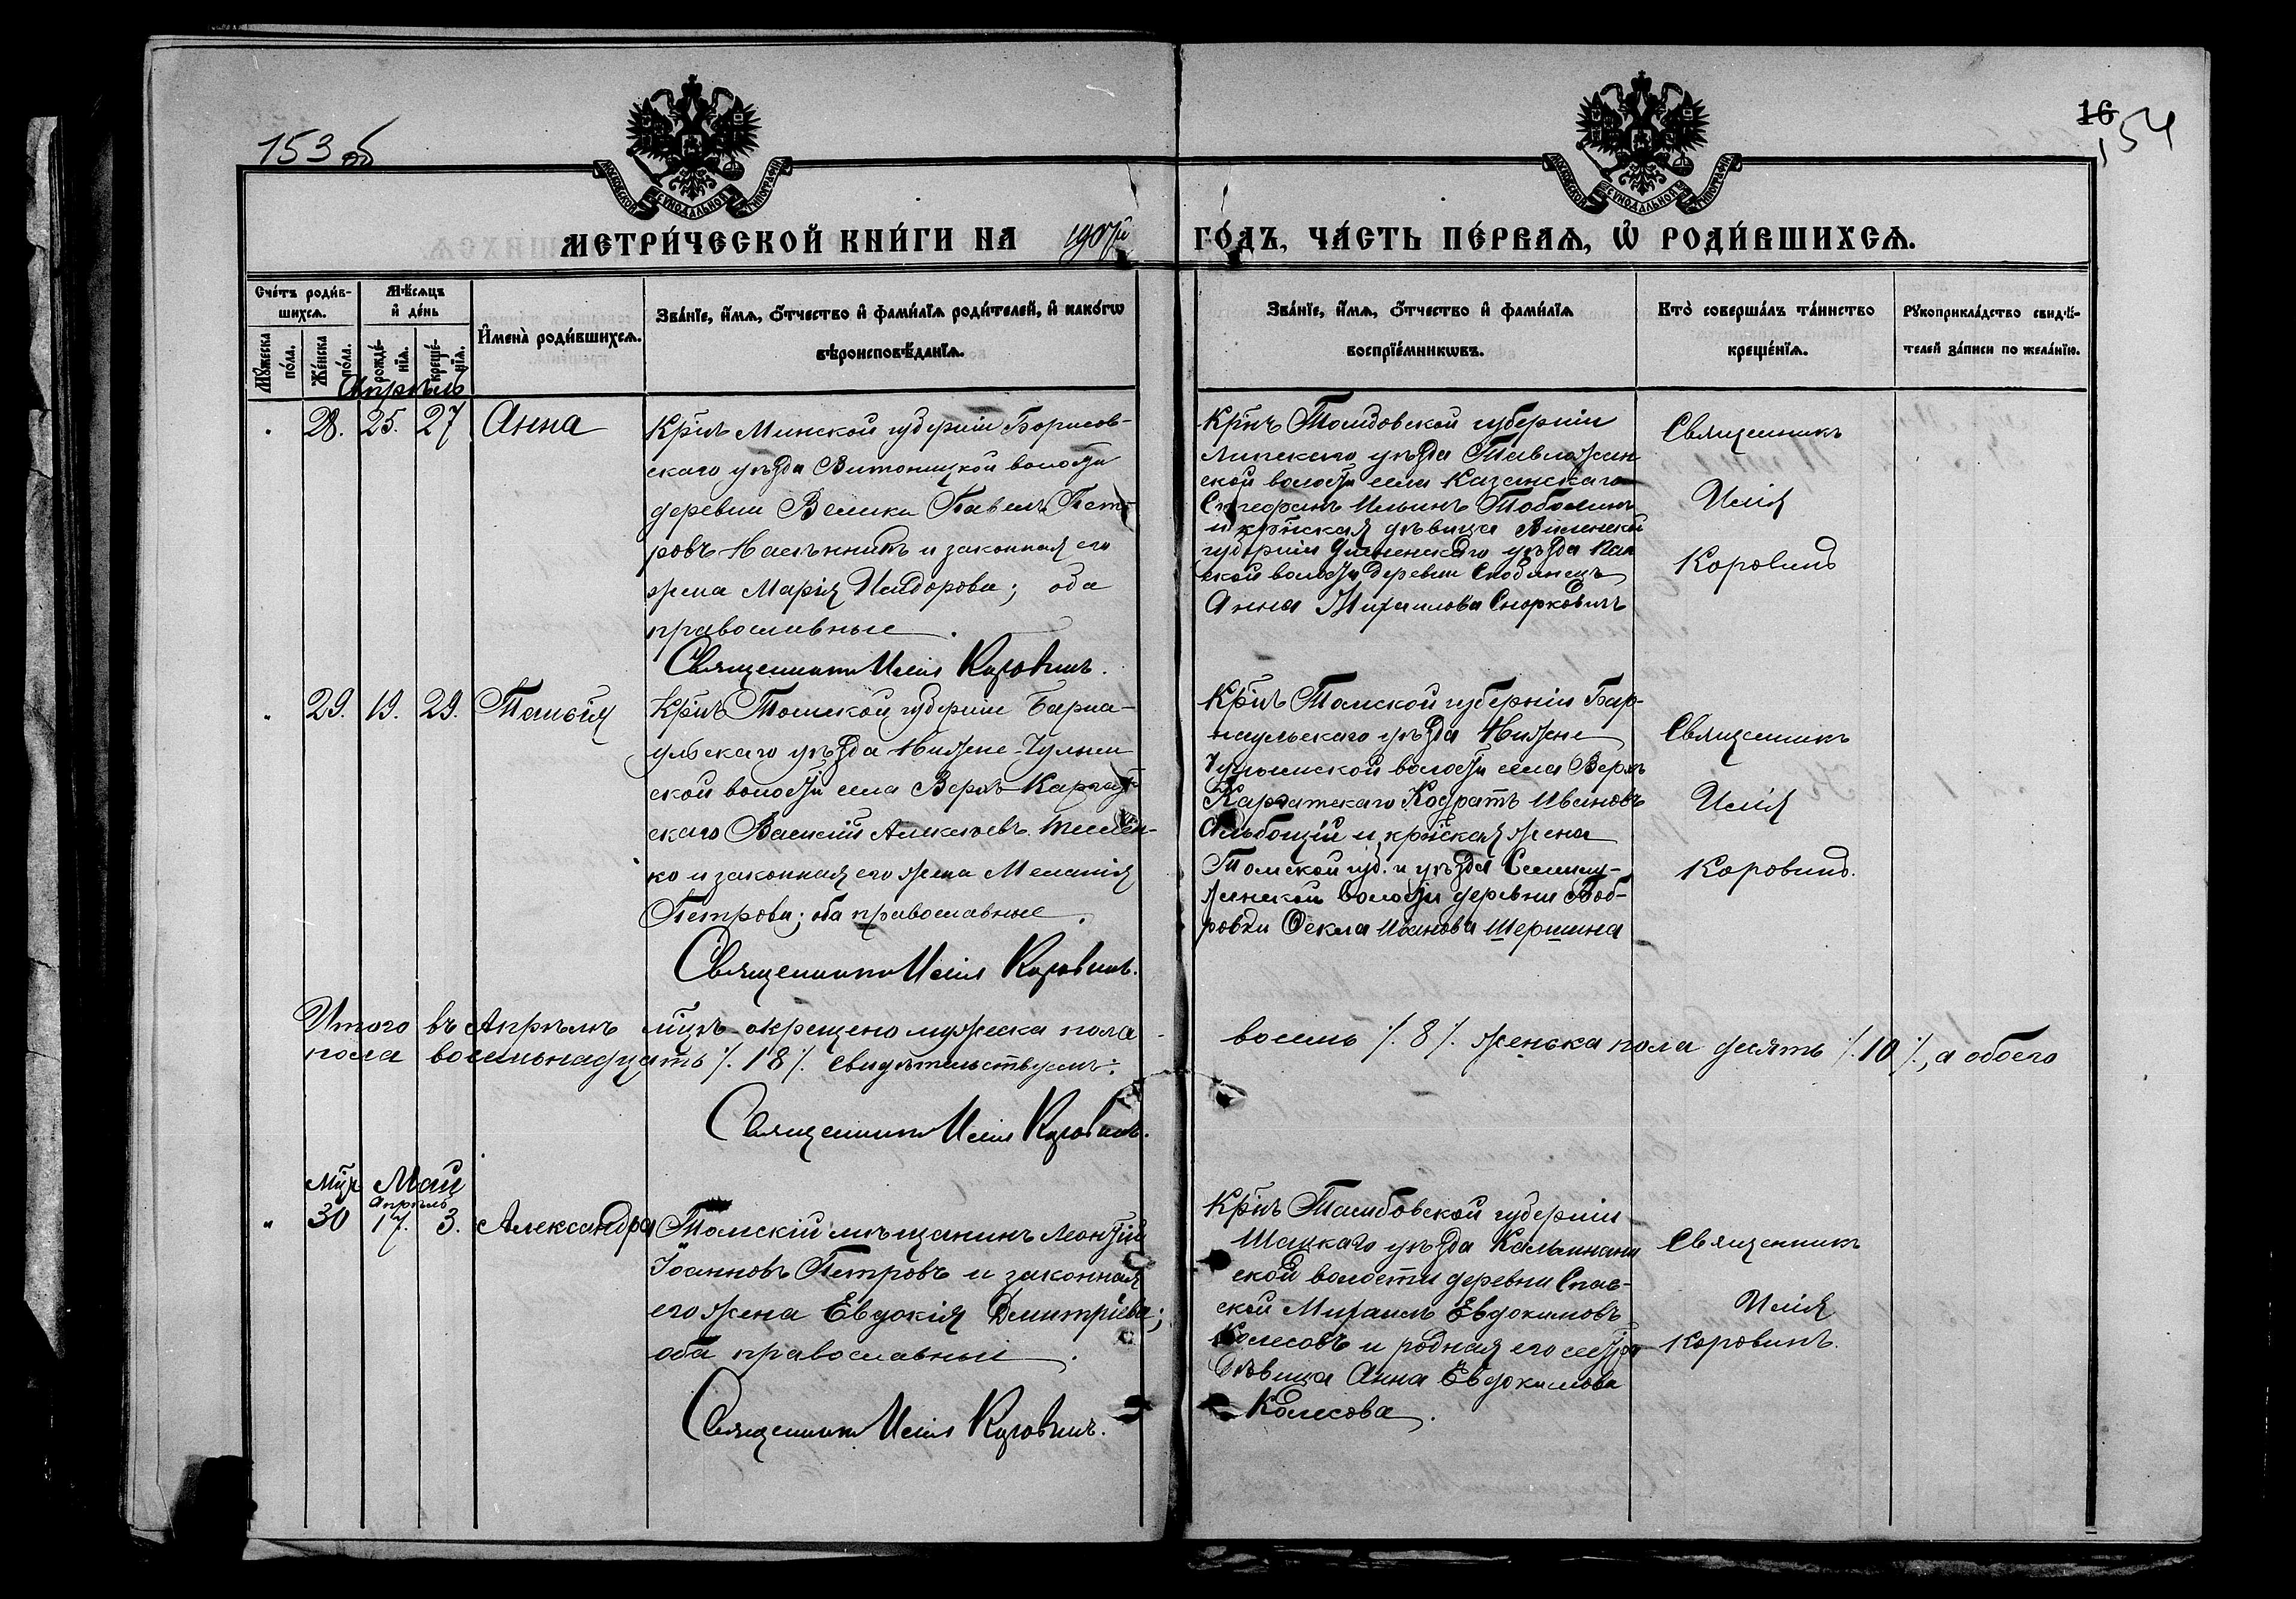 153 об
16
154
МОСКОВСКОЙ СѴНОДАЛЬНОЙ ТИПОГРАФІИ
МОСКОВСКОЙ СѴНОДАЛЬНОЙ ТИПОГРАФІИ
МЕТРИ́ЧЕСКОЙ КНИ́ГИ НА 1907й ГО́ДЪ, ЧА́СТЬ ПЕ́РВАѦ, Ѡ҆ РОДИ́ВШИХСѦ.
Сче́тъ роди́в-
шихсѧ.
Мѣ́сѧцъ
и҆ де́нь
Мꙋ́жеска по́ла.
Же́нска по́ла.
рожде́-
нїѧ.
креще́-
нїѧ.
И҆мена̀ роди́вшихсѧ.
Зва́нїе, и҆́мѧ, ѻ҆́тчество и҆ фами́лїѧ роди́телей, и҆ како́гѡ
вѣроисповѣ́данїѧ.
Зва́нїе, и҆́мѧ, ѻ҆́тчество и҆ фами́лїѧ
воспрїе́мникѡвъ.
Кто̀ соверша́лъ та́инство
креще́нїѧ.
Рꙋкоприкла́дство свидѣ́-
телей за́писи по жела́нїю.
Апрѣль
28. 25. 27 Анна
Кр̃нъ Минской губерніи Борисов-
скаго уѣзда Витоницкой волости
деревни Велики Павелъ Пет-
ровъ и законная его
жена Марія Исидорова; оба
православные.
Священникъ Илія Коровинъ.
Кр̃нъ Тамбовской губерніи
Липскаго уѣзда
ской волости села Казанскаго
Стефанъ Ильинъ
и кр̃нская дѣвица Виленской
губерніи уѣзда
ской волости деревни
Анна Михаилова
Священникъ
Илія
Коровинъ
29. 19. 29. Таисія
Кр̃нъ Томской губерніи Барна-
ульскаго уѣзда Нижне-Чулым
ской волости села Верхъ-Каргат-
скаго Василій Алексѣевъ
ко и законная его жена Меланія
Петрова; оба православные.
Священникъ Илія Коровинъ.
Кр̃нъ Томской губерніи Бар-
наульскаго уѣзда Нижне
Чулымской волости села Верхъ
Каргатскаго Кодратъ Ивановъ
и кр̃нская жена
Томской губ. и уѣзда Семилу-
жинской волости деревни Боб-
ровки Ѳекла Иванова Шершина
Священникъ
Илія
Коровинъ.
Итого въ Апрѣлѣ мц̃ѣ окрещено мужеска пола восемь ٪ 8 ٪ женска пола десять ٪ 10 ٪, а обоего
пола восемьнадцать ٪ 18 ٪ свидѣтельствуемъ:
Священникъ Илія Коровинъ.
Мц̃ъ Май
Апрѣль
30 17. 3. Александра
Томскій мѣщанинъ Леонтій
Іоанновъ Петровъ и законная
его жена Евдокія Димитріева;
оба православные.
Священникъ Илія Коровинъ.
Кр̃нъ Тамбовской губерніи
Шацкаго уѣзда
ской волости деревни Спас-
ской Михаилъ Евдокимовъ
Колесовъ и родная его сестра
дѣвица Анна Евдокимова
Колесова.
Священникъ
Илія
Коровинъ.